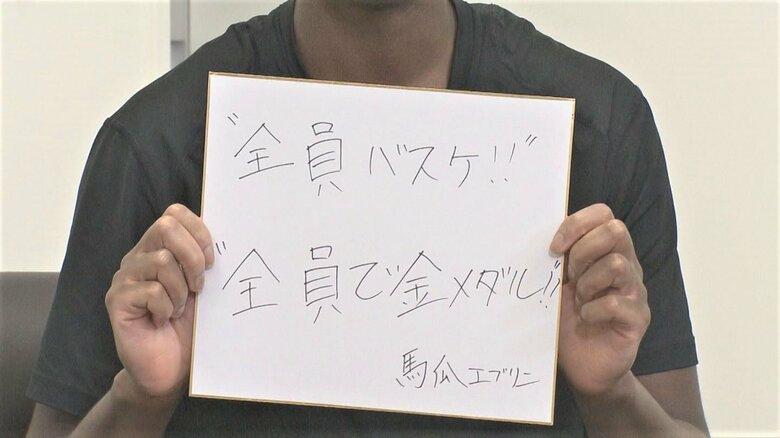 "全員バスケ!!"
"全員で金メダル!!"
馬瓜エブリン